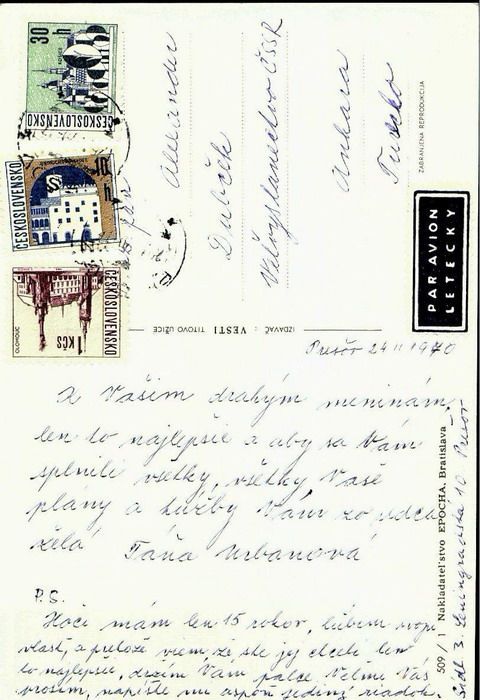 30 h
KOŠICE
ČESKOSLOVENSKO
ČESKOSLOVENSKO
h
OLOMOUC
1 KČS
ČESKOSLOVENSKO
pán
Alexander
Dubček
Veľvyslanectvo ČSSR
Ankara
Turecko
ZABRANJENA REPRODUKCIJA
PAR AVION
LETECKY
IZDAVAČ: VESTI TITOVO UŽICE
Prešov 24 II 1970
K Vašim drahým meninám,
len to najlepšie a aby sa Vám
splnili všetky, všetky Vaše
plány a túžby Vám zo srdca
želá Táňa Urbanová
P.S.
Hoci mám len 15 rokov, ľúbim svoju
vlasť, a pretože viem, že ste jej chceli len
to najlepšie, držím Vám palce. Veľmi Vás
prosím, napíšte mi aspoň jeden riadok,
509 / 1 Nakladateľstvo EPOCHA, Bratislava
Sídl. 3. Leningradská 10 Prešov